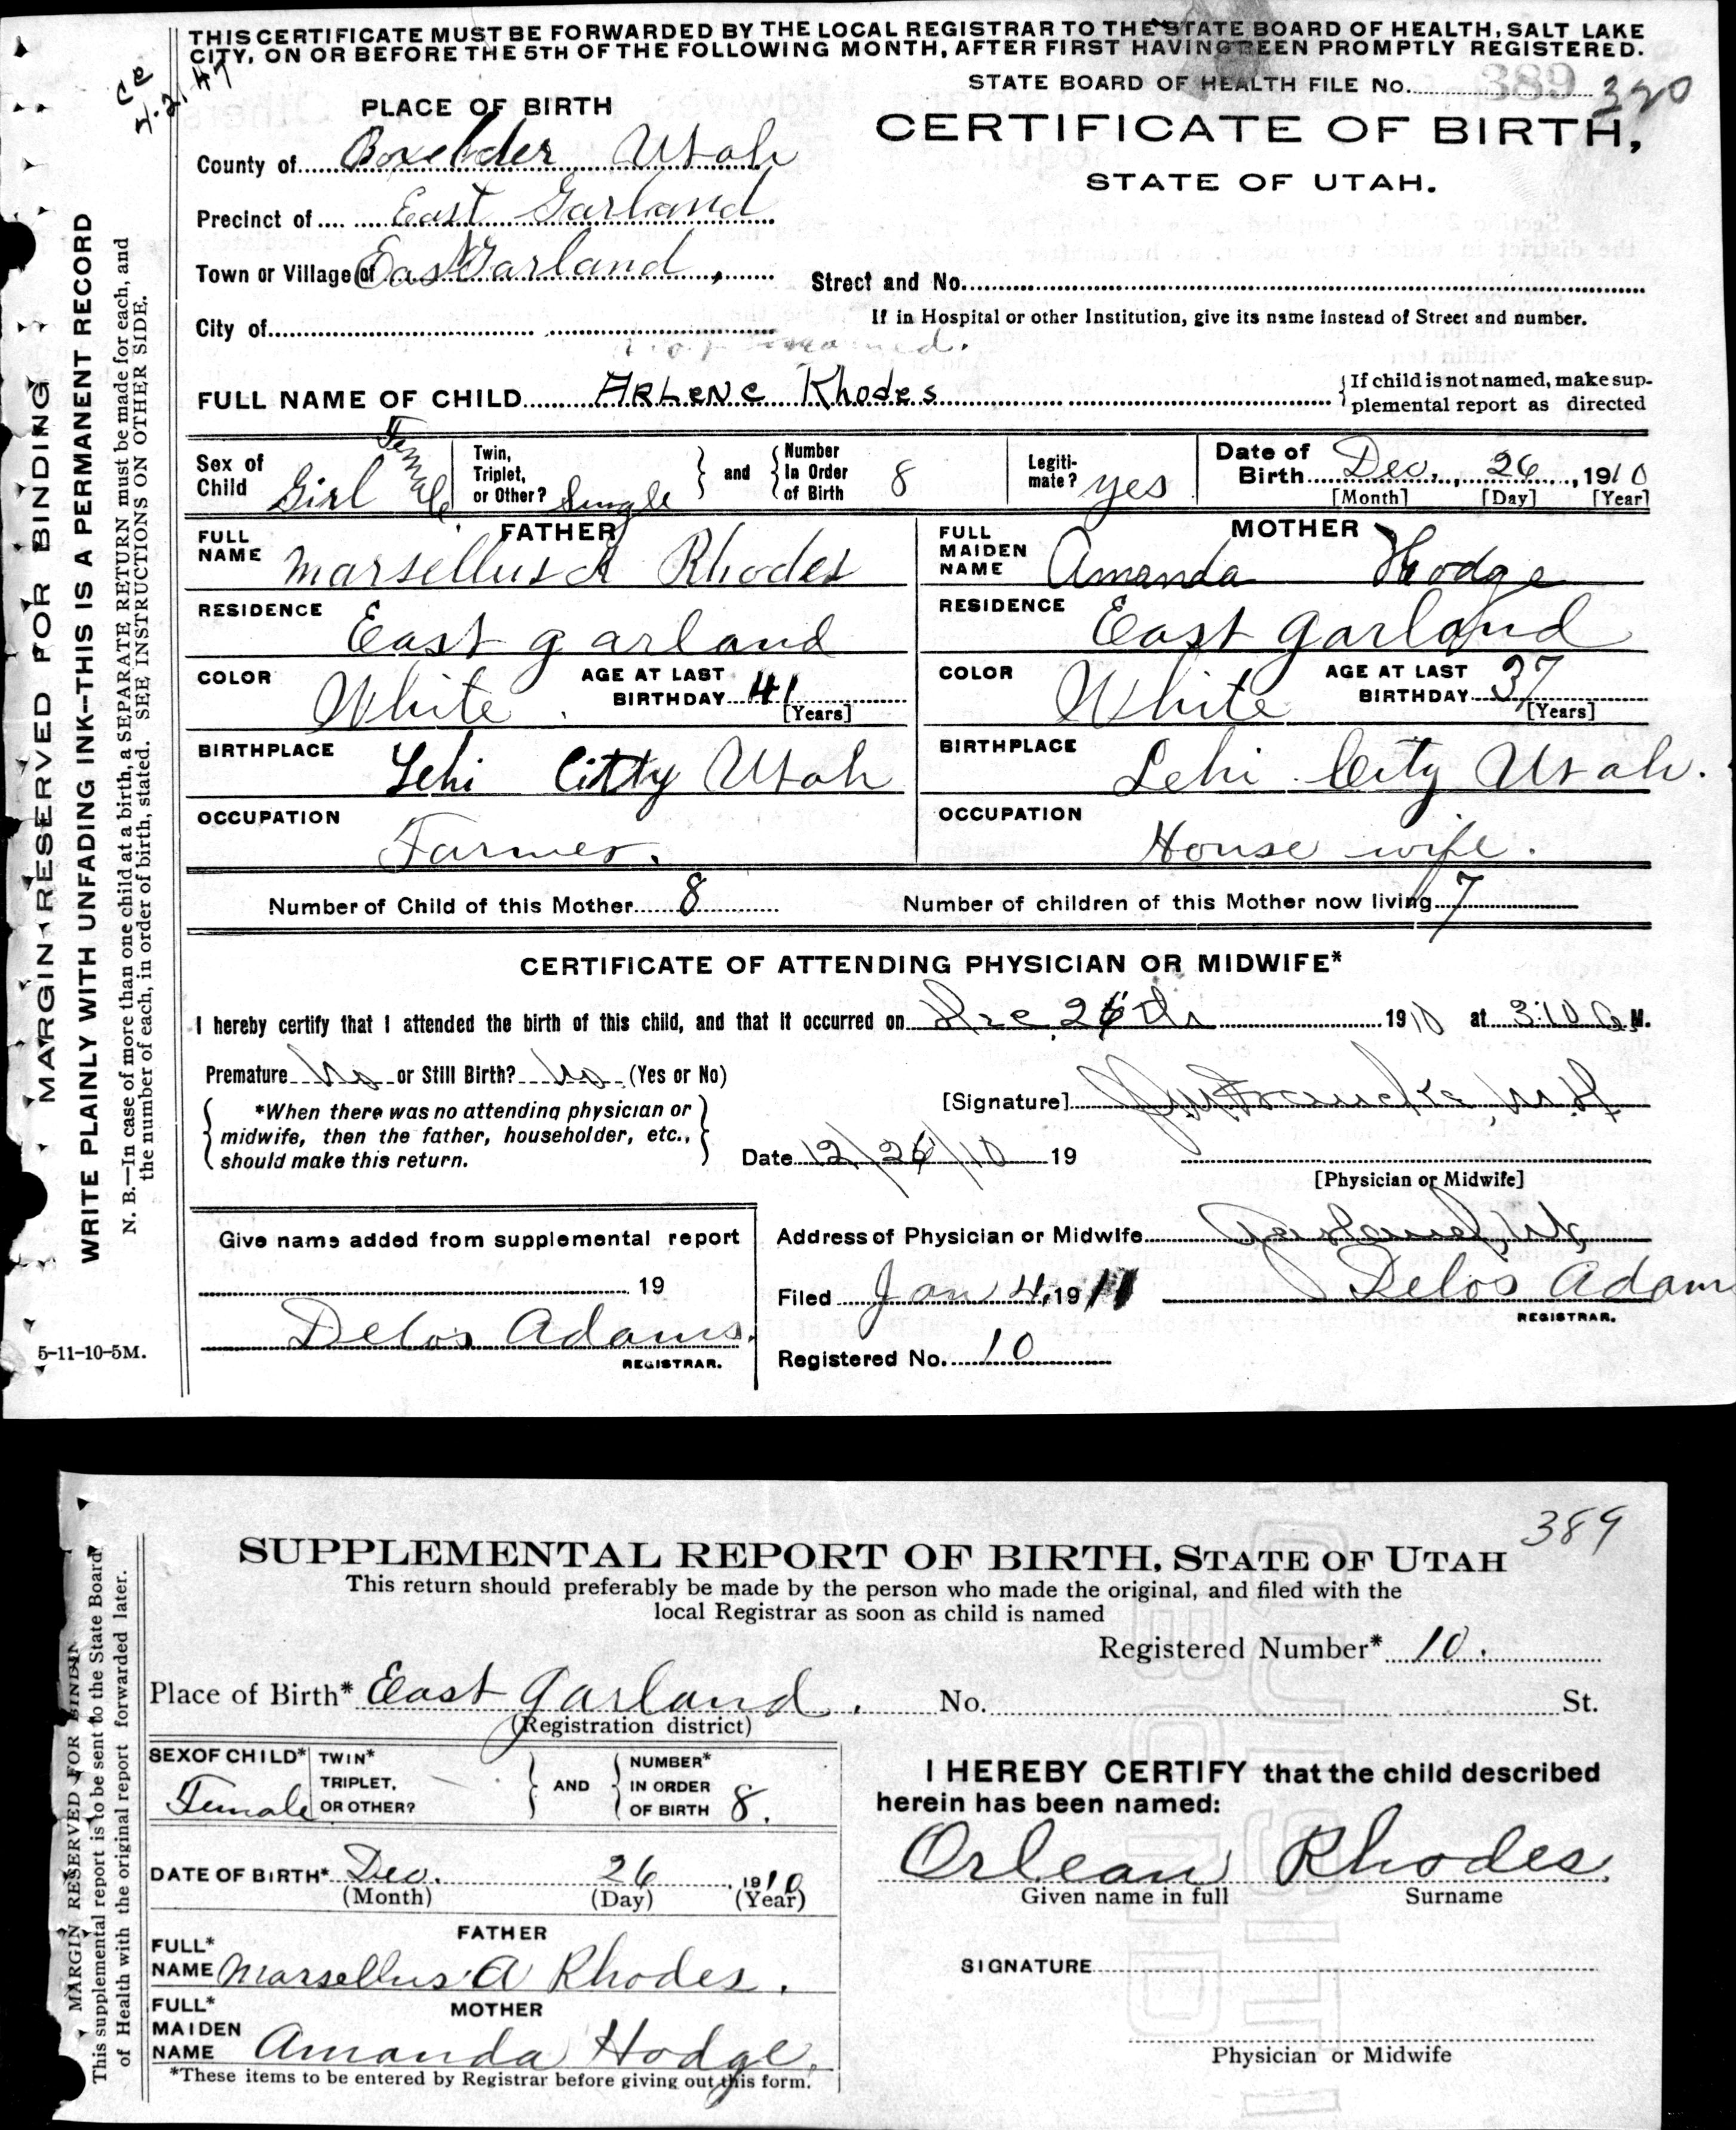 THIS CERTIFICATE MUST BE FORWARDED BY THE LOCAL REGISTRAR TO THE STATE BOARD OF HEALTH, SALT LAKE
CITY, ON OR BEFORE THE 5TH OF THE FOLLOWING MONTH, AFTER FIRST HAVING BEEN PROMPTLY REGISTERED.
STATE BOARD OF HEALTH FILE No. 389 320
PLACE OF BIRTH
CERTIFICATE OF BIRTH,
STATE OF UTAH.
County of Boxelder Utah
Precinct of East Garland
Town or Village of East Garland,
Street and No.
City of
If in Hospital or other Institution, give its name instead of Street and number.
FULL NAME OF CHILD ARLENE Rhodes
{If child is not named, make sup-
plemental report as directed
Sex of Child Girl Female
Twin, Triplet, or Other? Single } and { Number In Order of Birth 8
Legiti-mate? yes
Date of Birth Dec. 26, 1910
[Month] [Day] [Year]
FATHER
FULL NAME Marsellus A Rhodes
MOTHER
FULL MAIDEN NAME Amanda Hodge
RESIDENCE East garland
RESIDENCE East garland
COLOR White AGE AT LAST BIRTHDAY 41 [Years]
COLOR White AGE AT LAST BIRTHDAY 37 [Years]
BIRTHPLACE Lehi Citty Utah
BIRTHPLACE Lehi City Utah.
OCCUPATION Farmer.
OCCUPATION House wife.
Number of Child of this Mother 8
Number of children of this Mother now living 7
CERTIFICATE OF ATTENDING PHYSICIAN OR MIDWIFE*
I hereby certify that I attended the birth of this child, and that it occurred on Dec 26th 1910 at 3:10 a M.
Premature No or Still Birth? No (Yes or No)
{ *When there was no attending physician or
midwife, then the father, householder, etc.,
should make this return. }
[Signature]
Date 12/26/10 19
[Physician or Midwife]
Give name added from supplemental report
19
Delos Adams.
REGISTRAR.
Address of Physician or Midwife Garland, Ut,
Filed Jan 4, 1911 Delos Adam
REGISTRAR.
Registered No. 10
MARGIN RESERVED FOR BINDING
WRITE PLAINLY WITH UNFADING INK—THIS IS A PERMANENT RECORD
N. B.—In case of more than one child at a birth, a SEPARATE RETURN must be made for each, and
the number of each, in order of birth, stated. SEE INSTRUCTIONS ON OTHER SIDE.
5-11-10-5M.
389
SUPPLEMENTAL REPORT OF BIRTH, STATE OF UTAH
This return should preferably be made by the person who made the original, and filed with the
local Registrar as soon as child is named
Registered Number* 10.
Place of Birth* East Garland. No. St.
(Registration district)
SEX OF CHILD* Female
TWIN* TRIPLET, OR OTHER? } AND { NUMBER* IN ORDER OF BIRTH 8.
I HEREBY CERTIFY that the child described
herein has been named:
Orlean Rhodes,
Given name in full Surname
DATE OF BIRTH* Dec. 26, 1910
(Month) (Day) (Year)
FATHER
FULL* NAME Marsellus A Rhodes.
SIGNATURE
MOTHER
FULL* MAIDEN NAME Amanda Hodge.
Physician or Midwife
*These items to be entered by Registrar before giving out this form.
MARGIN RESERVED FOR BINDIN
This supplemental report is to be sent to the State Board
of Health with the original report forwarded later.